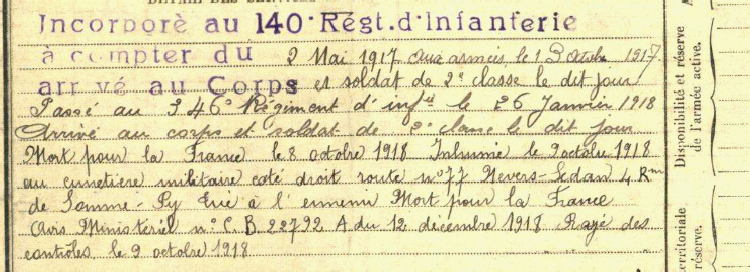 DÉTAIL DES SERVICES
Incorporè au 140e Régt. d'Infanterie
à compter du 2 Mai 1917 aux armées, le 13 octobre 1917.
arrivé au Corps et soldat de 2e classe le dit jour
Passé au 346e Régiment d'infie le 26 Janvier 1918
Arrivé au corps et soldat de 2e classe le dit jour
Mort pour la France le 8 octobre 1918 Inhumé le 9 octobre 1918
au cimetière militaire coté droit route n° 77 Nevers-Sedan 4 Km
de Somme-Py Tué à l'ennemi Mort pour la France
Avis Ministériel n° C.B. 22792 A du 12 décembre 1918 Rayé des
contrôles le 9 octobre 1918
Disponibilité et réserve
de l'armée active.
erritoriale
réserve.